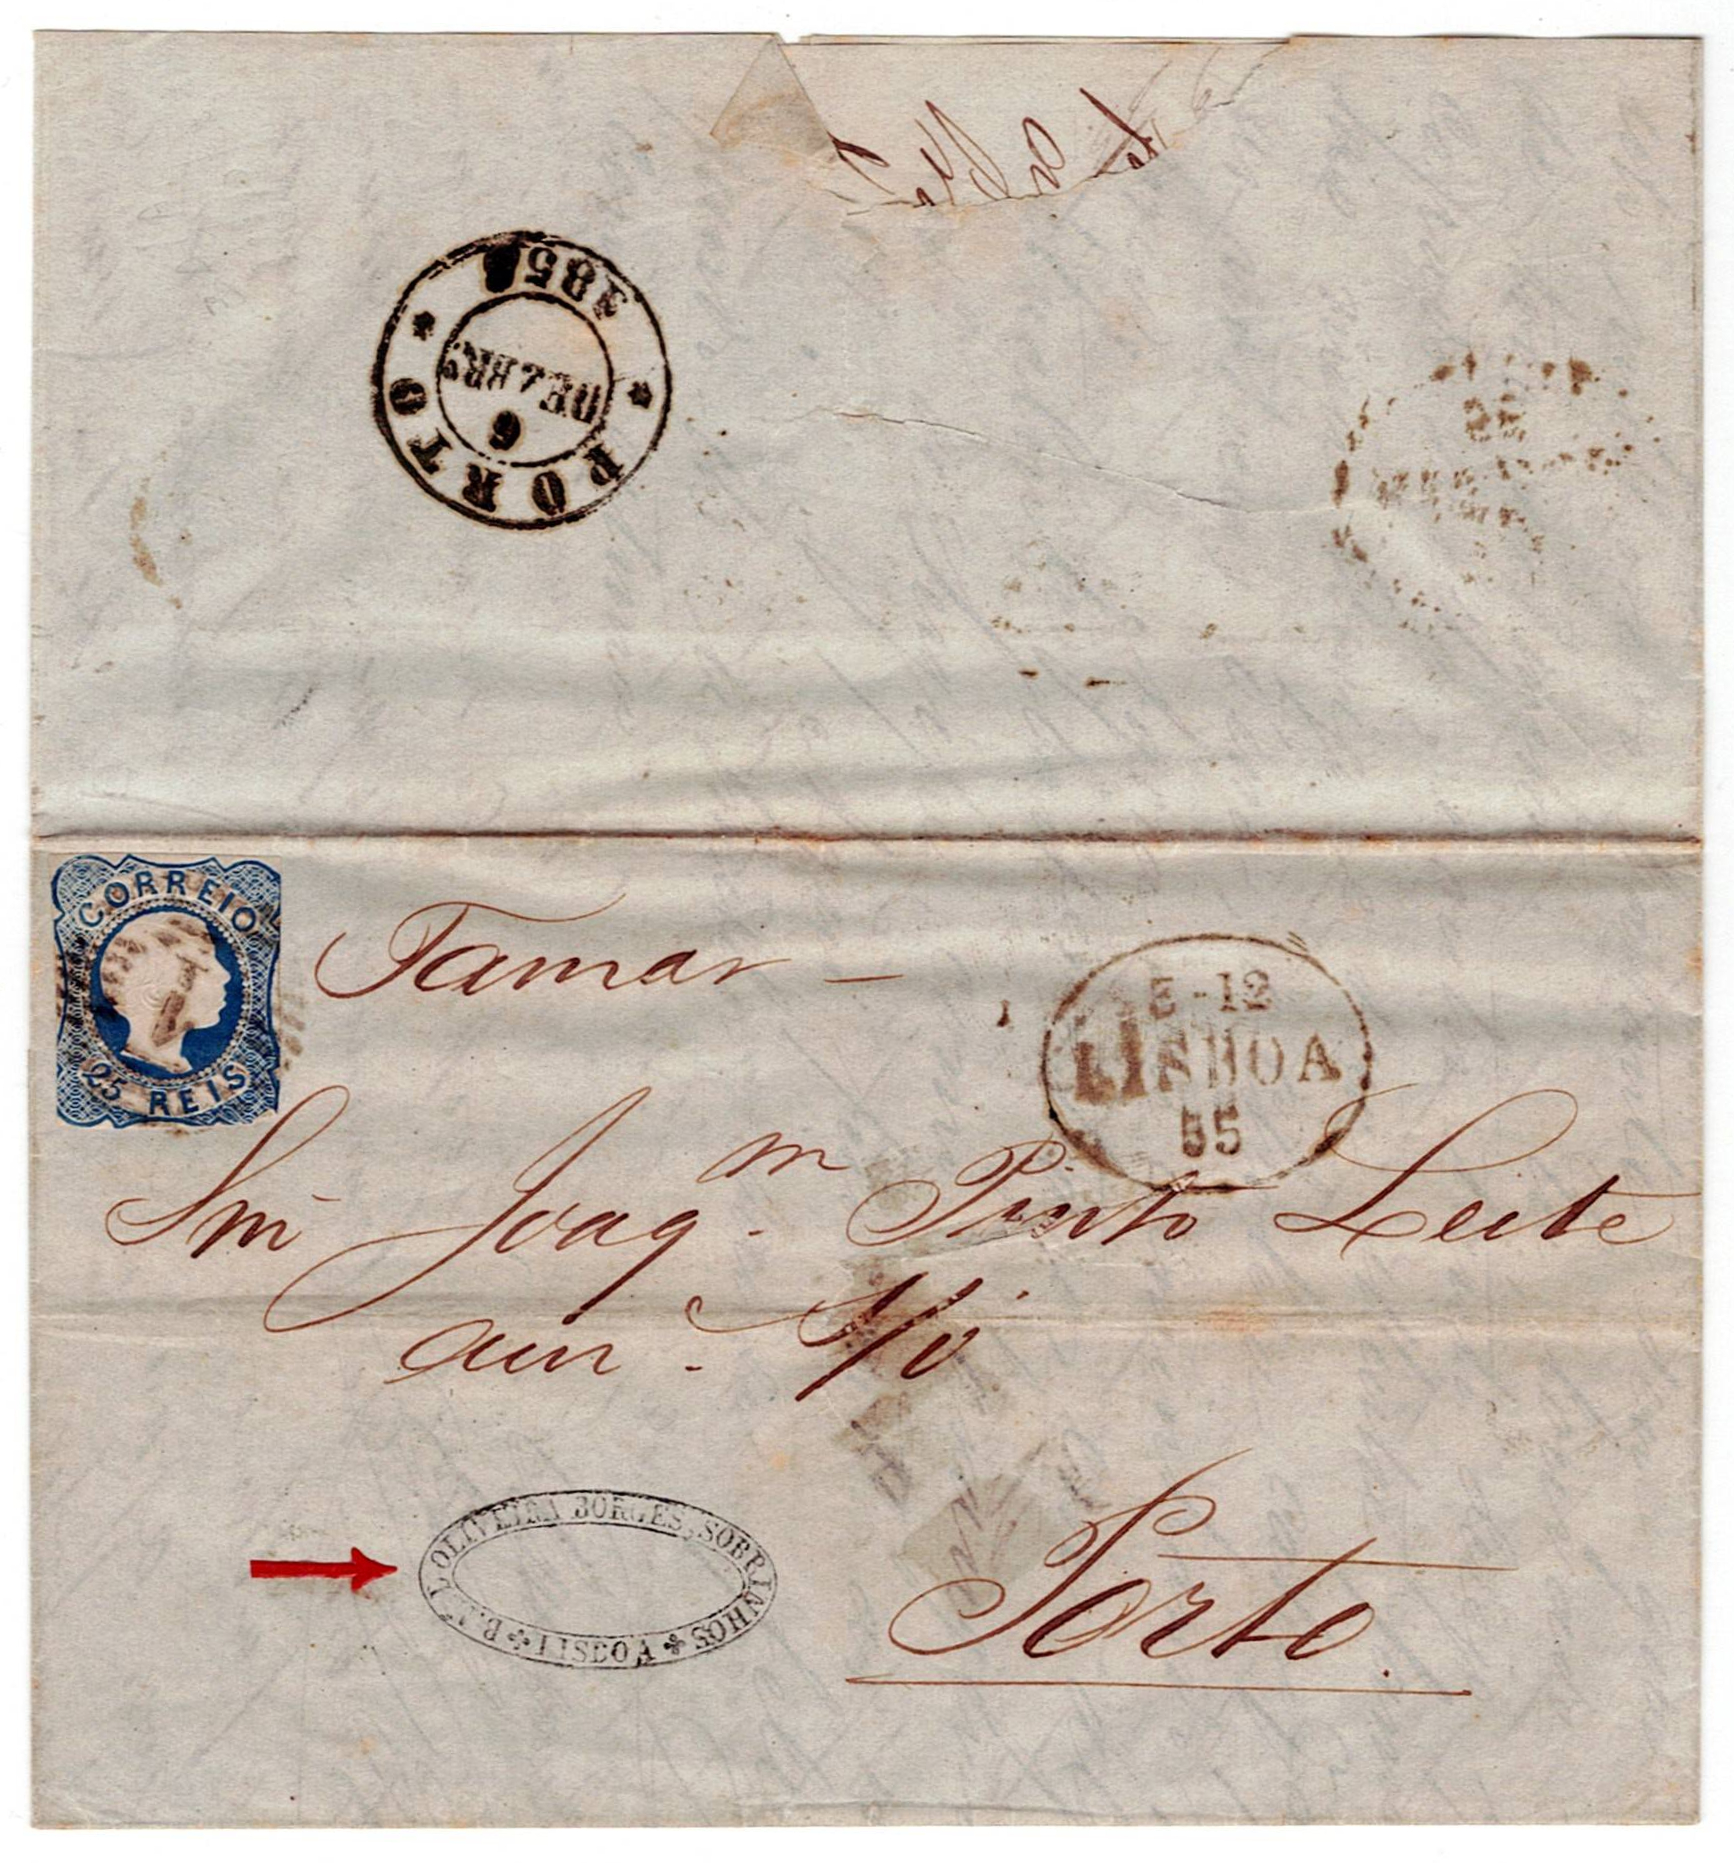 185
PORTO
6
DEZBRO
CORREIO
25 REIS
Tamar -
E-12
LISBOA
55
Snr Joaqm Pinto Leite
Porto.
B.to L. OLIVEIRA BORGES, SOBRINHOS
LISBOA